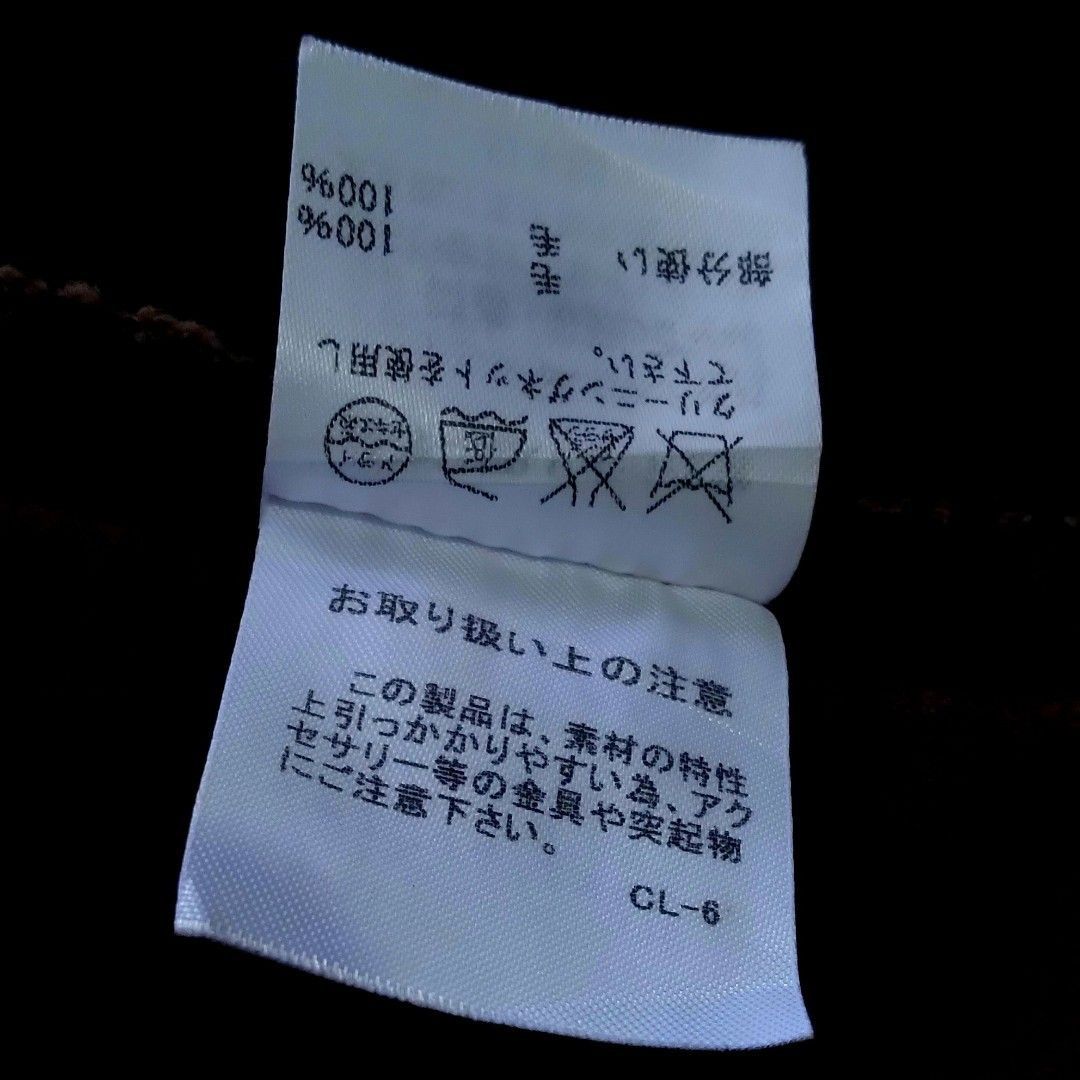 低
ドライ
クリーニングネットを使用し
て下さい。
毛 100%
部分使い 毛 100%
お取り扱い上の注意
この製品は、素材の特性
上引っかかりやすい為、アク
セサリー等の金具や突起物
にご注意下さい。
CL-6